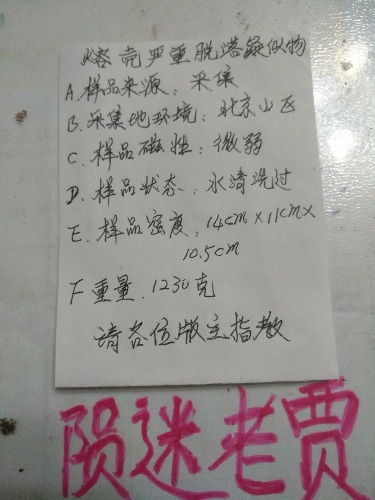 熔壳严重脱落疑似物
A.样品来源：采集
B.采集地环境：北京山区
C.样品磁性：微弱
D.样品状态：水清洗过
E.样品密度：14cm×11cm×
10.5cm
F重量.1230克
请各位版主指教
陨迷老贾